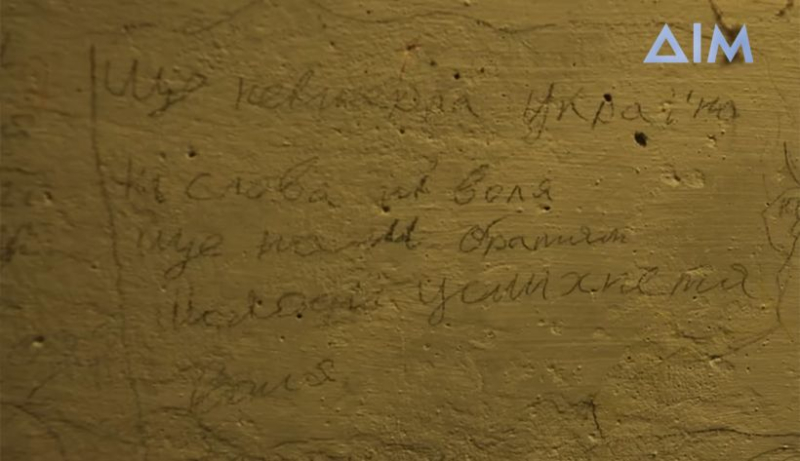 ДІМ
Ще невмерла Україна
ні слова ні воля
ще нам
усміхнетя